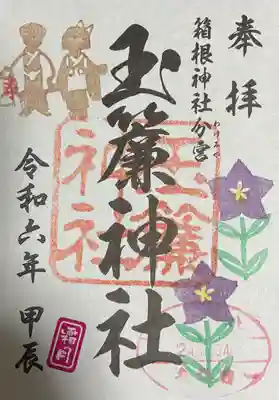 奉拝
箱根神社分宮
わけみや
玉簾神社
玉簾
神社
令和六年 甲辰
霜月